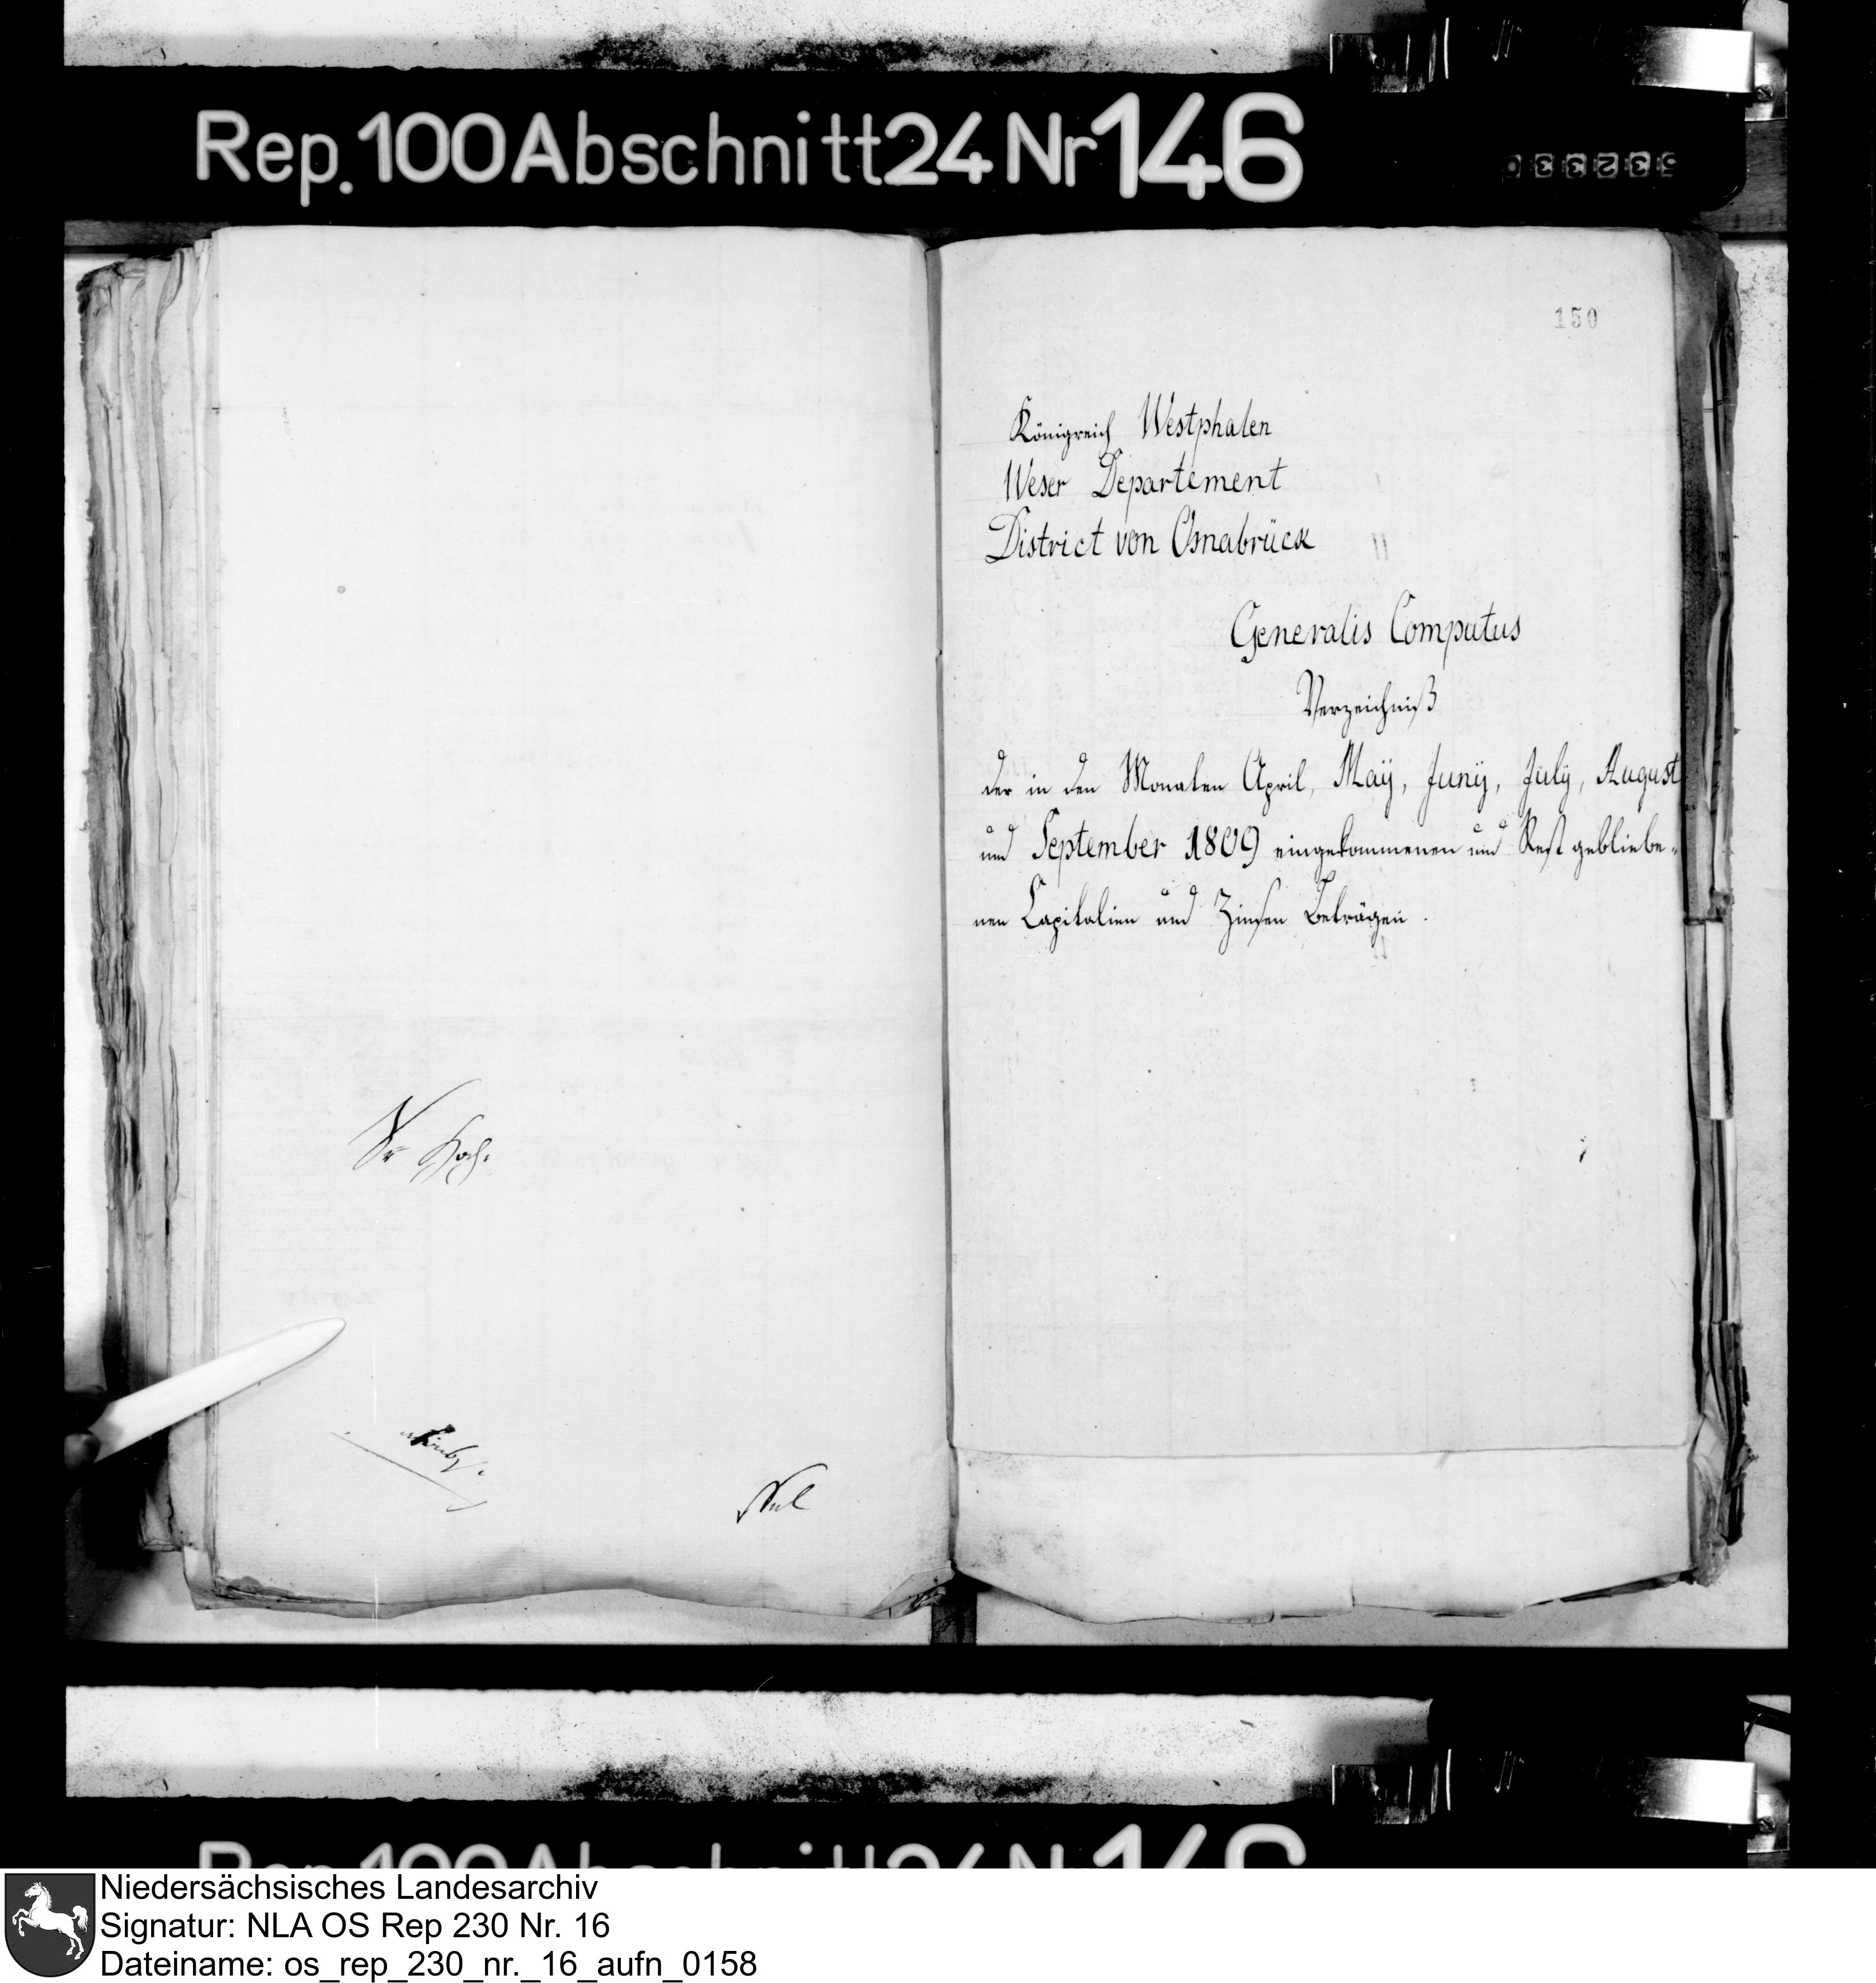 Rep. 100 Abschnitt 24 Nr 146
150
Königreich Westphalen
Weser Departement
District von Osnabrück
Generalis Computus
Verzeichniß
der in den Monaten April, Maÿ, Junÿ, Julÿ, August
und September 1809 eingekommenen und Rest gebliebe-
nen Capitalien und Zinsen Beträgen.
Niedersächsisches Landesarchiv
Signatur: NLA OS Rep 230 Nr. 16
Dateiname: os_rep_230_nr._16_aufn_0158